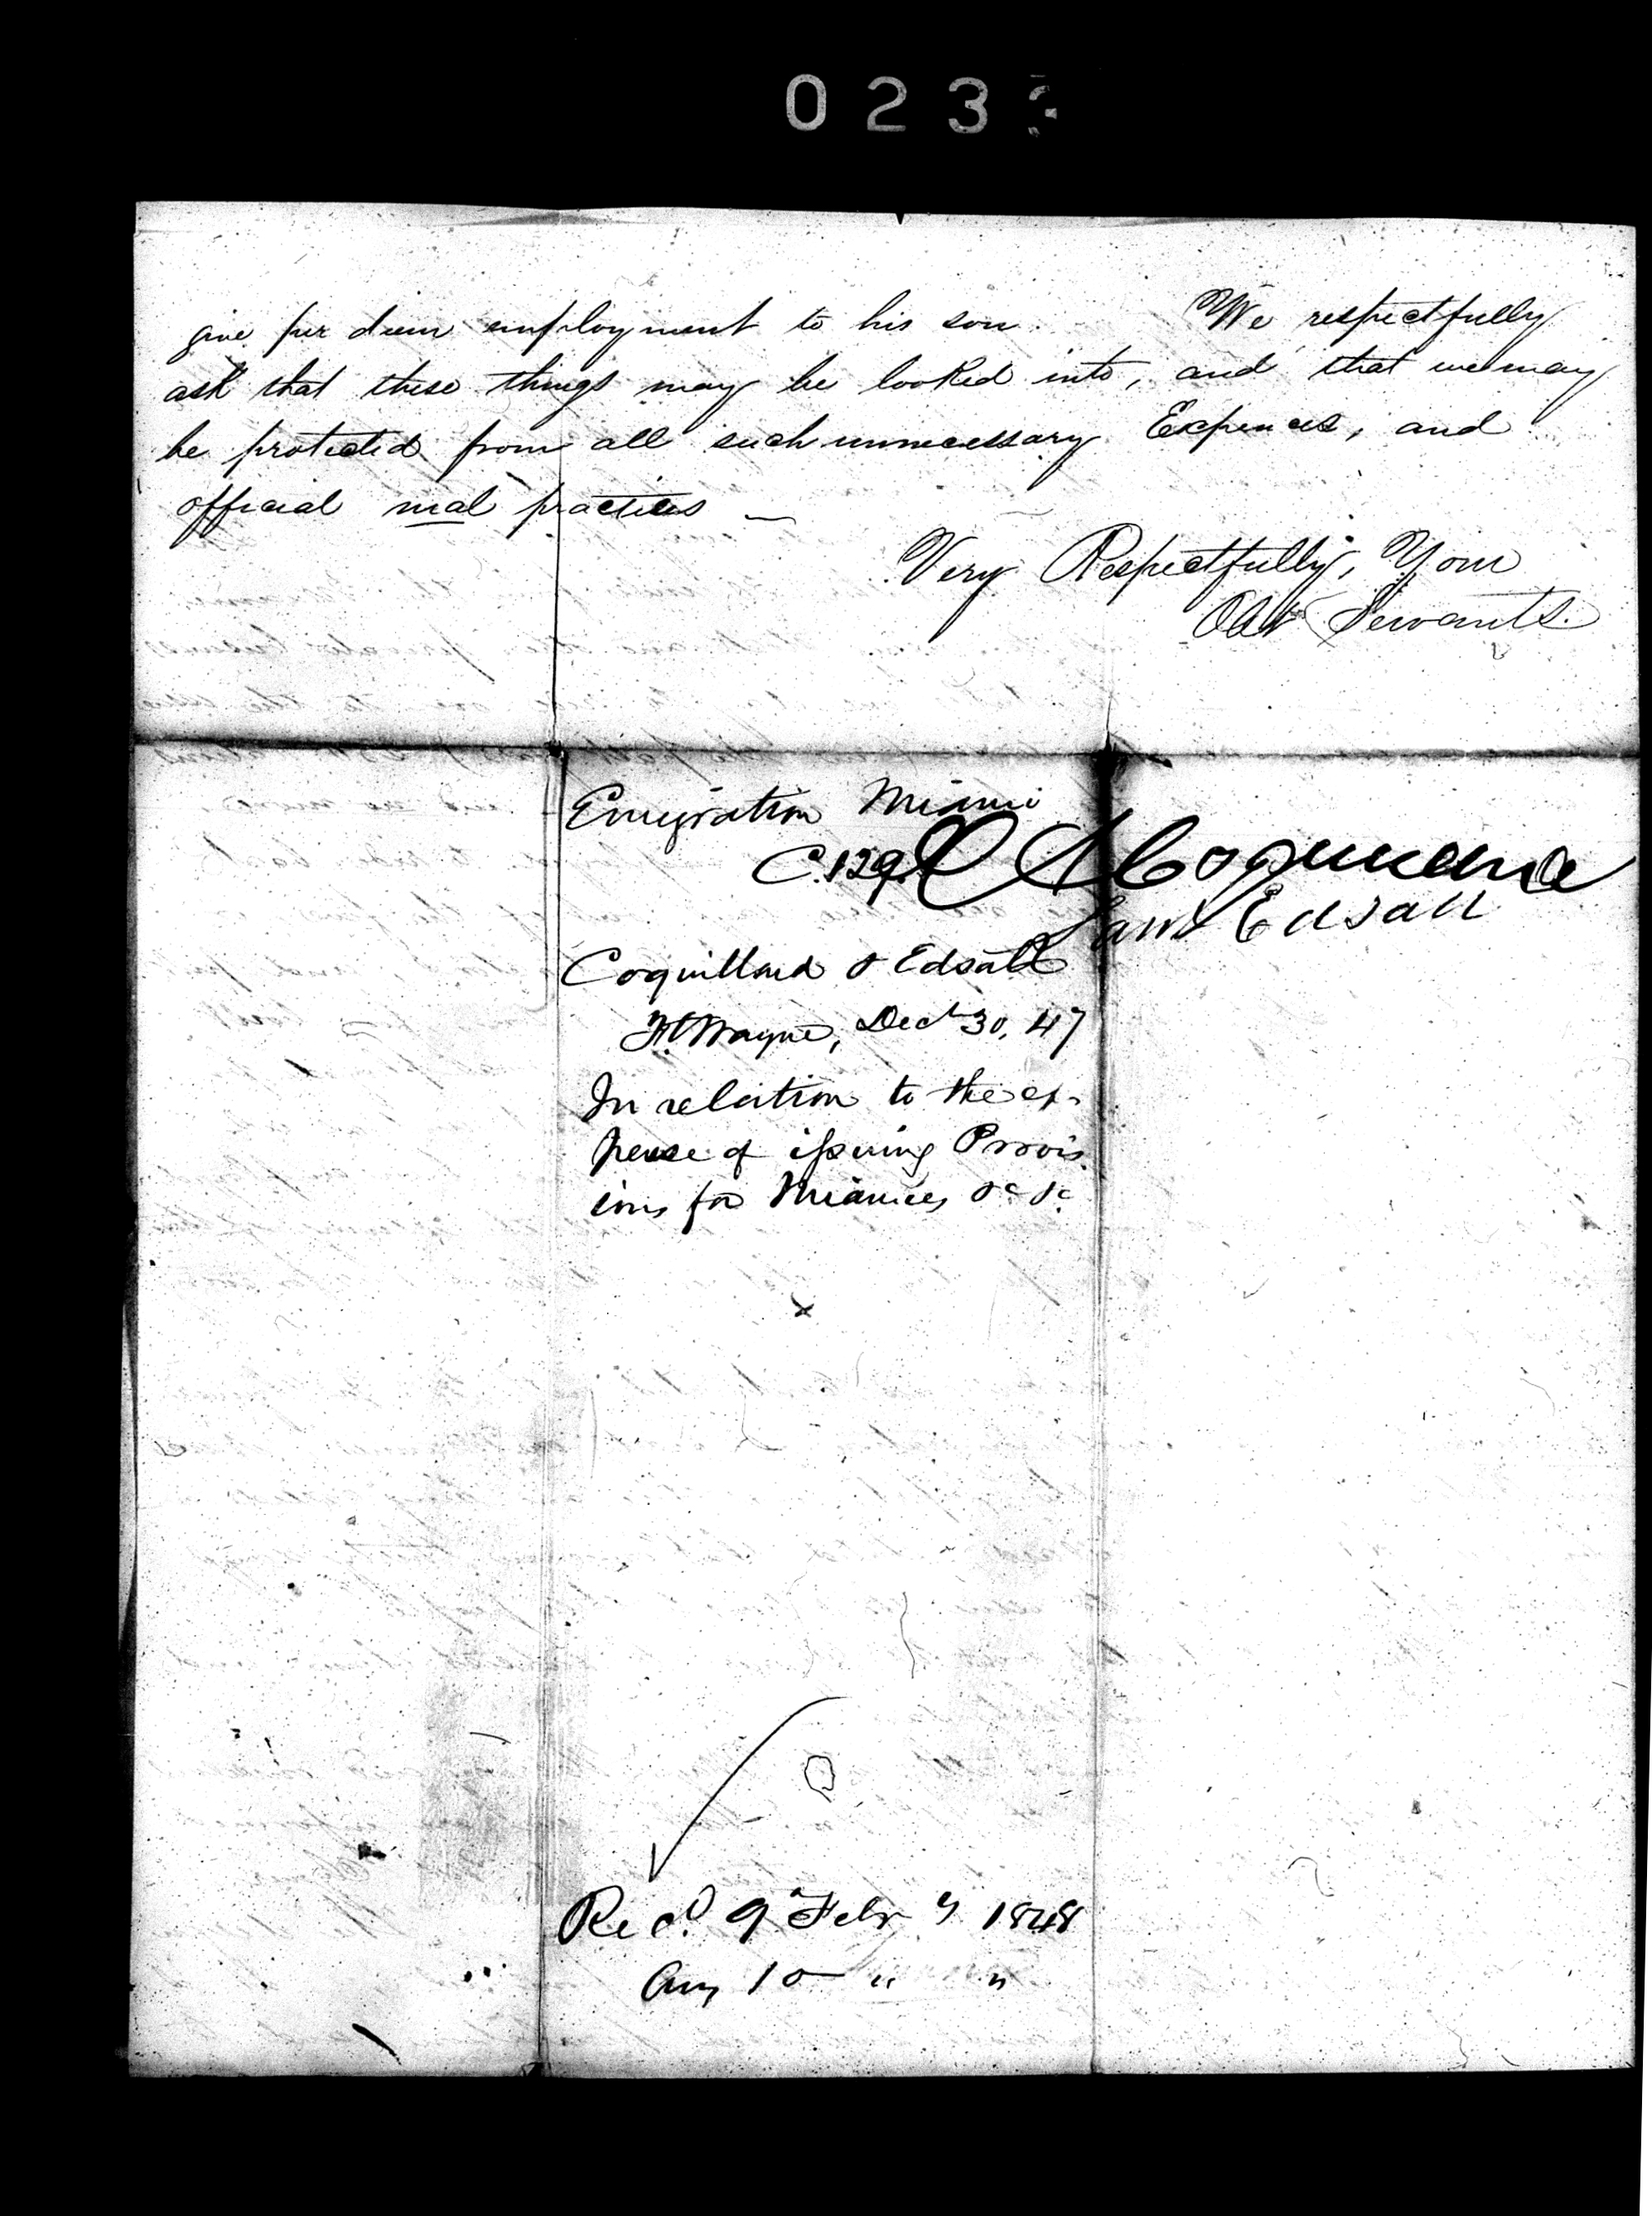 023
give per diem employment to his son. We respectfully
ask that these things may be looked into, and that we may
be protected from all such unnecessary Expences, and
official mal practices —
Very Respectfully, Your
Obt Servants.
Emigration Miami
C.129.
A Coquillard
Saml Edsall
Coquillard & Edsall
Ft Wayne, Decr 30, 47
In relation to the ex-
pense of issuing Provis
ions for Miamies &c &c
Recd. 9 Feby 1848
Ans 10 " "